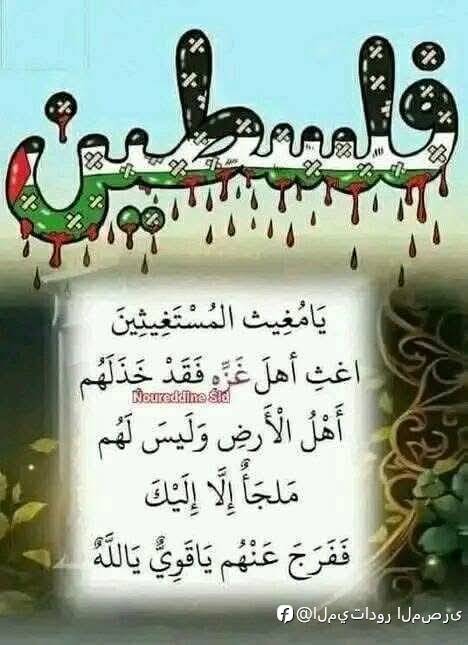 فلسطين
يَامُغِيث المُسْتَغِيثِينَ
اغثِ أهلَ غَزَّهِ فَقَدْ خَذَلَهُم
Noureddine Sid
أَهْلُ الْأَرضِ وَلَيسَ لَهُم
مَلجَأٌ إِلَّا إِلَيْكَ
فَفَرَجَ عَنْهُم يَاقَوِيٌّ يَاللَّهٌ
@الميتادور المصرى